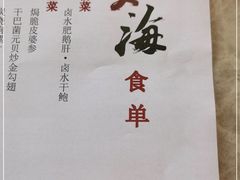 海
食单
菜
卤水肥鹅肝·卤水干鲍
菜
焗脆皮婆参
干巴菌元贝炒金勾翅